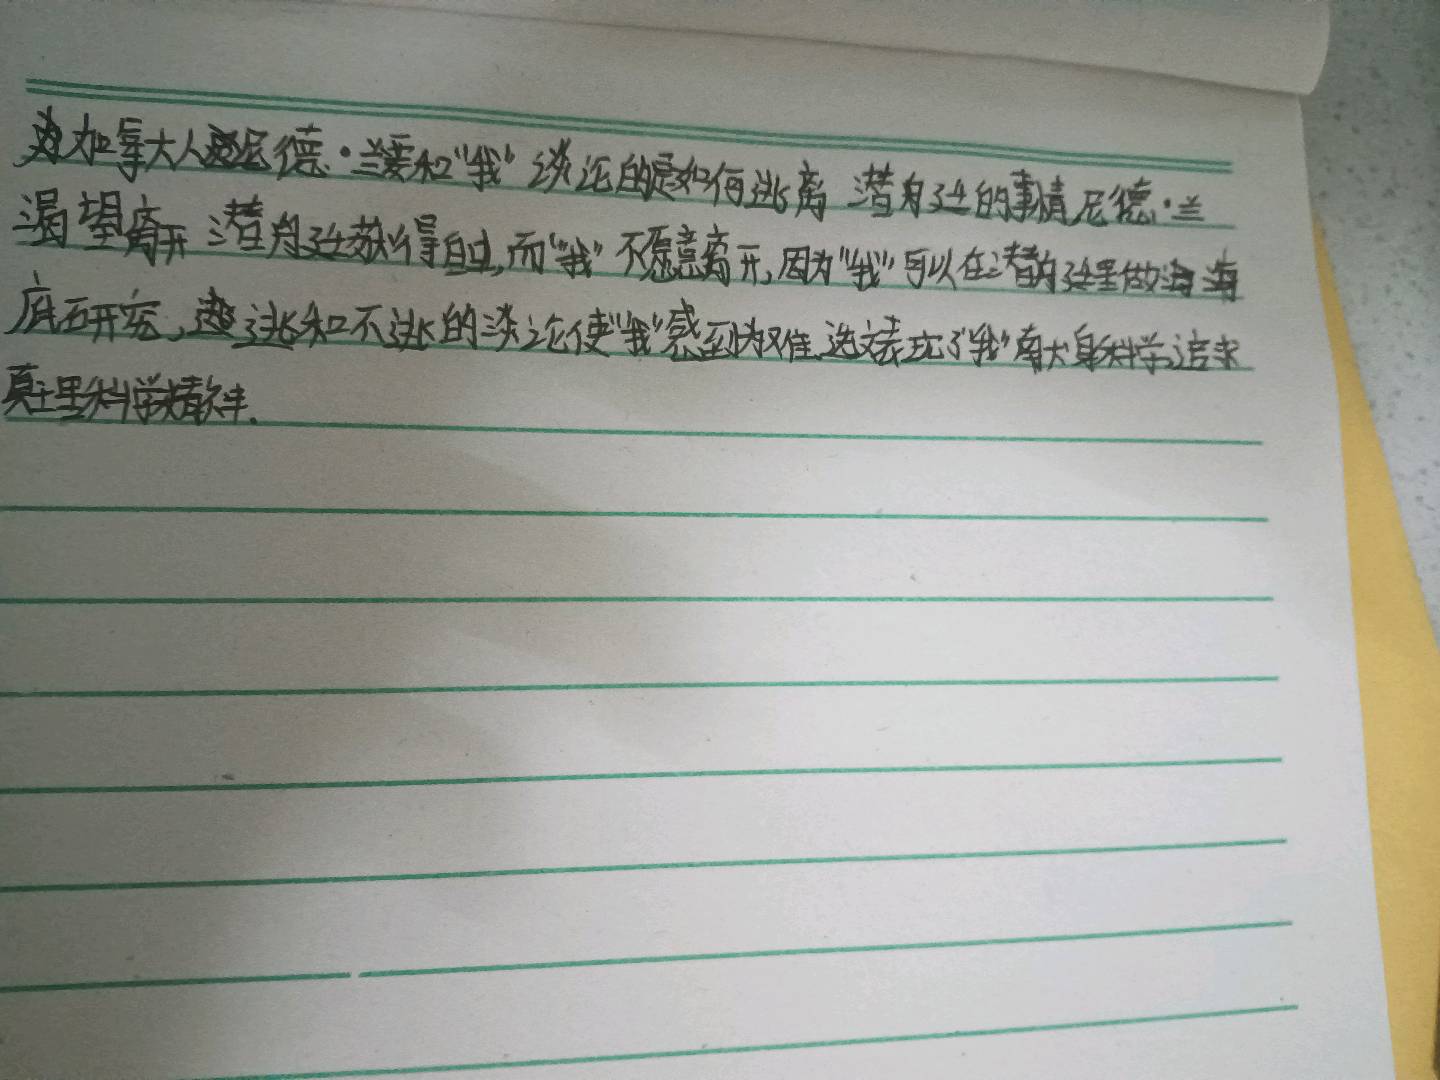 加拿大人尼德·兰要和“我”谈论的是如何逃离 潜舟这的事情尼德·兰
渴望离开 潜舟这获得自由,而“我”不愿意离开,因为“我”可以在潜舟这里做海
底研究,逃和不逃的谈论使“我”感到为难 选文表现了“我”有大身科学追求
真理科学精神.